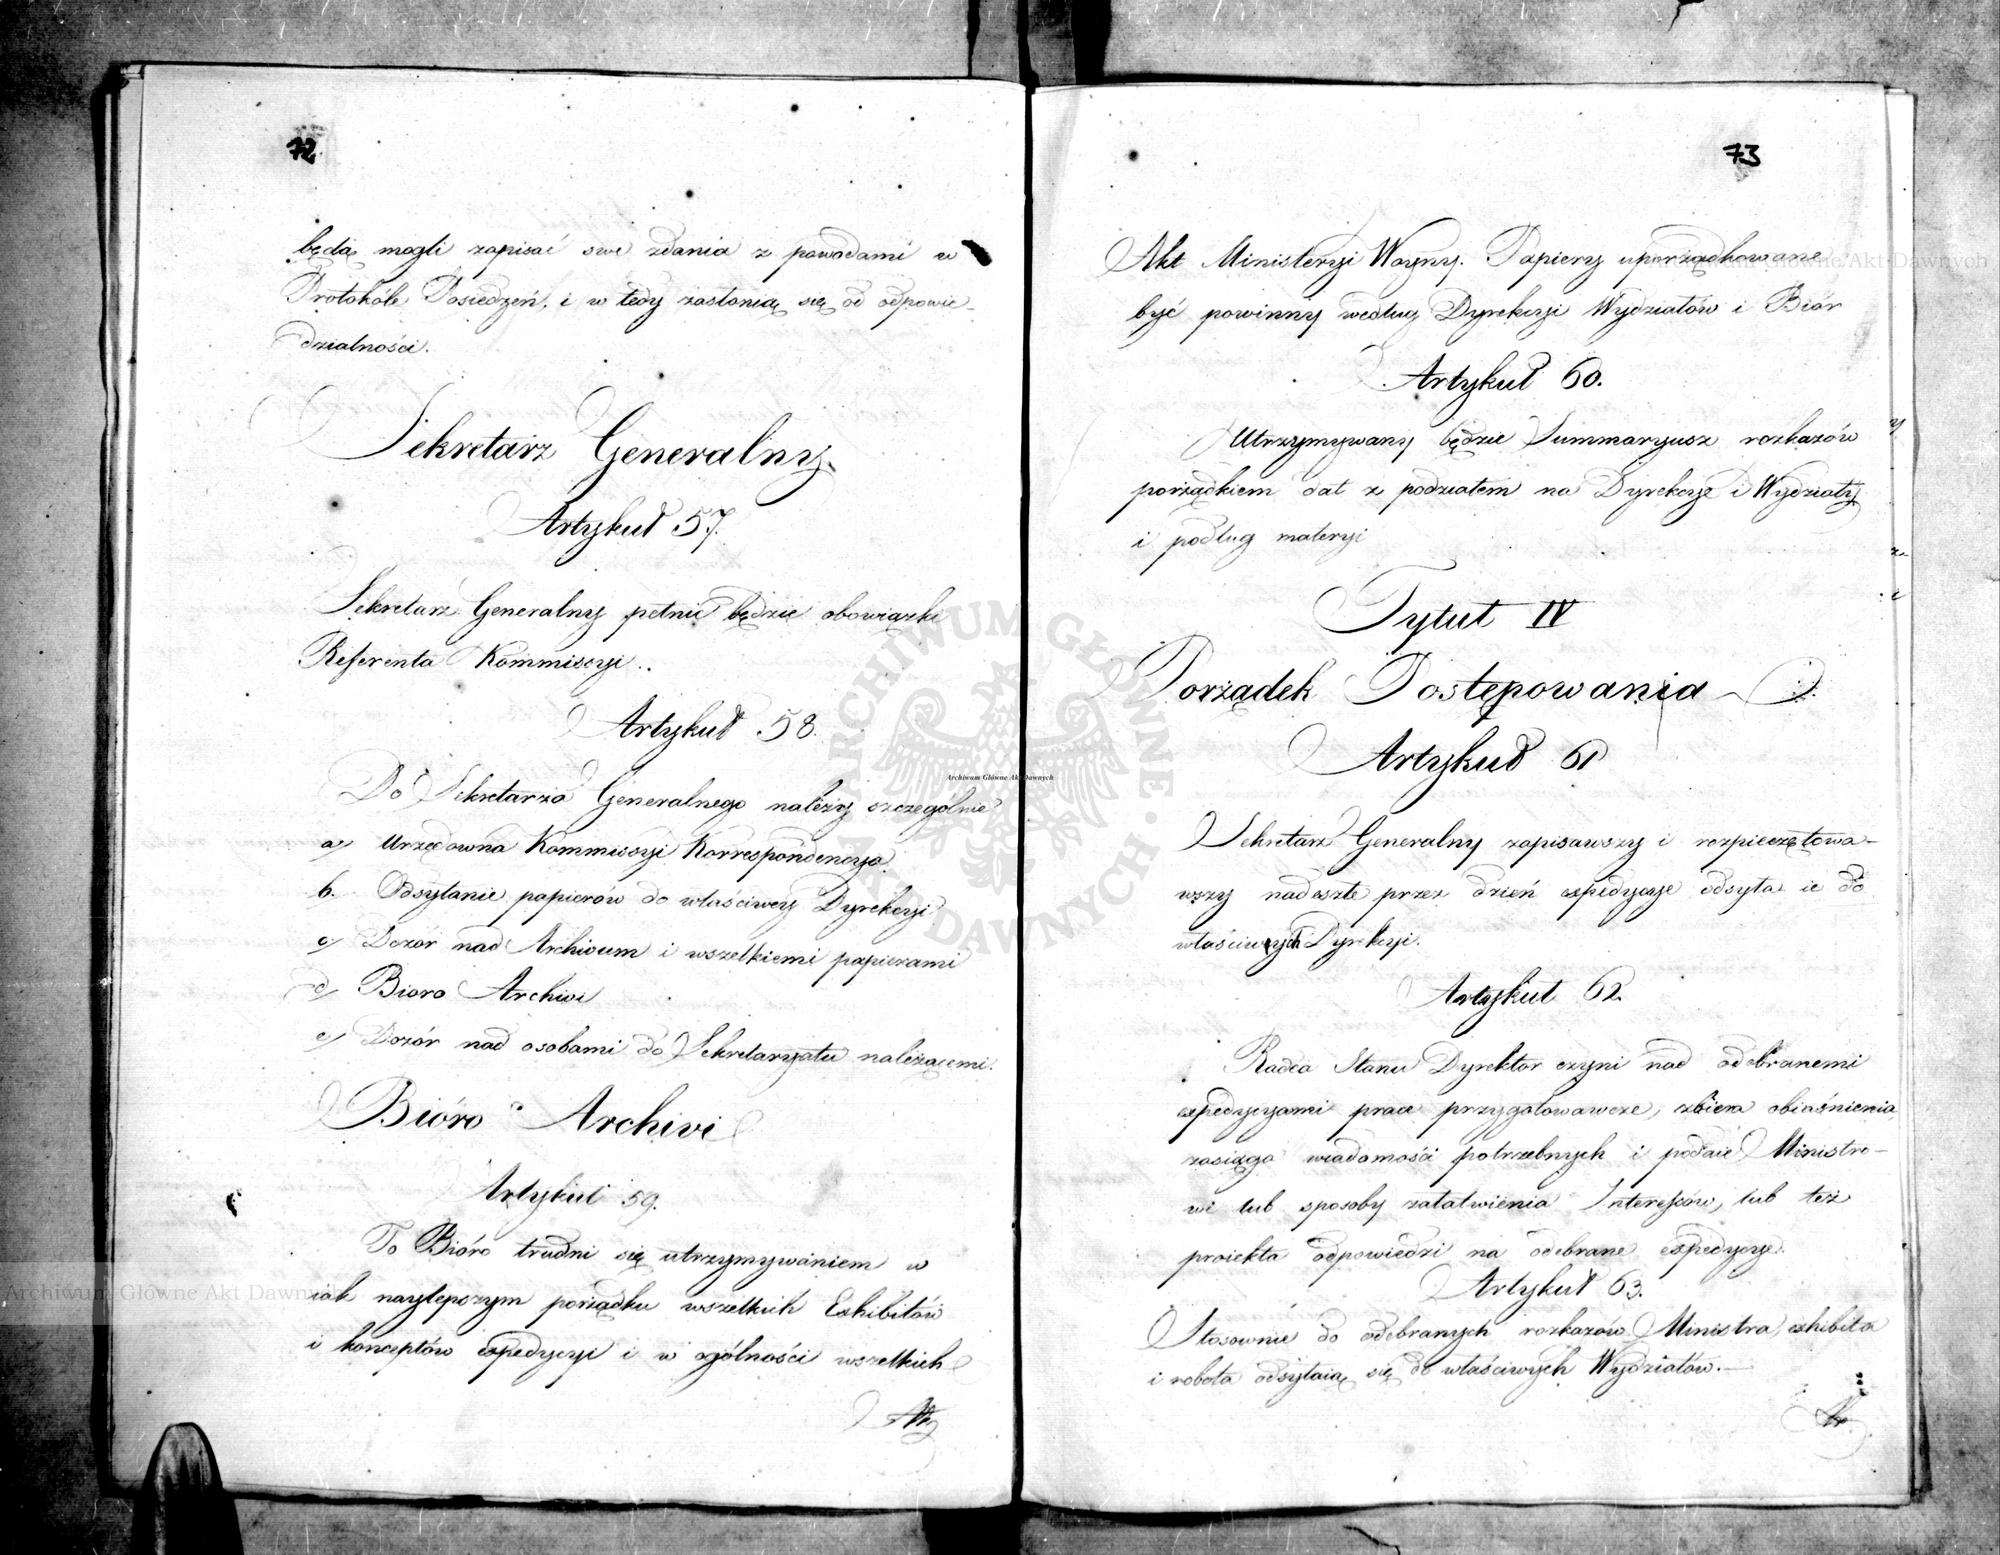 72
będą mogli zapisać swe zdania z powodami w
Protokóle Posiedzeń, i w tedy zasłonią się od odpowie-
dzialności.
Sekretarz Generalny.
Artykuł 57.
Sekretarz Generalny pełnić będzie obowiązki
Referenta Kommissyi.
Artykuł 58.
Do Sekretarza Generalnego należy szczególnie
a) Urzędowna Kommissyi Korrespondencya.
b. Odsyłanie papierów do właściwey Dyrekcyi
c) Dozór nad Archivum i wszelkiemi papierami
d) Bioro Archivi
e) Dozór nad osobami do Sekretaryatu należącemi.
Bióro Archivi
Artykuł 59.
To Bióro trudni się utrzymywaniem w
iak naylepszym porządku wszelkich Exhibitów
i konceptów expedycyi i w ogólności wszelkich
Akt
73
Akt Ministeryi Woyny. Papiery uporządkowane
być powinny według Dyrekcyi Wydziałów i Biór
Artykuł 60.
Utrzymywany będzie Summaryusz rozkazów
porządkiem dat z podziałem na Dyrekcye i Wydziały
i podług materyi
Tytuł IV
Porządek Postępowania
Artykuł 61
Sekretarz Generalny zapisawszy i rozpieczętowa-
wszy nadeszłe przez dzień expedycye odsyła ie do
właściwych Dyrekcyi.
Artykuł 62.
Radca Stanu Dyrektor czyni nad odebranemi
expedycyami prace przygotowawcze, zbiera obiaśnienia,
zasięga wiadomości potrzebnych i podaie Ministro-
wi lub sposoby załatwienia Interessów, lub też
proiekta odpowiedzi na odebrane expedycye.
Artykuł 63.
Stosownie do odebranych rozkazów Ministra, exhibita
i robota odsyłaią się do właściwych Wydziałów.
Archiwum Główne Akt Dawnych
Archiwum Główne Akt Dawnych
Archiwum Główne Akt Dawnych
ARCHIWUM GŁÓWNE AKT DAWNYCH